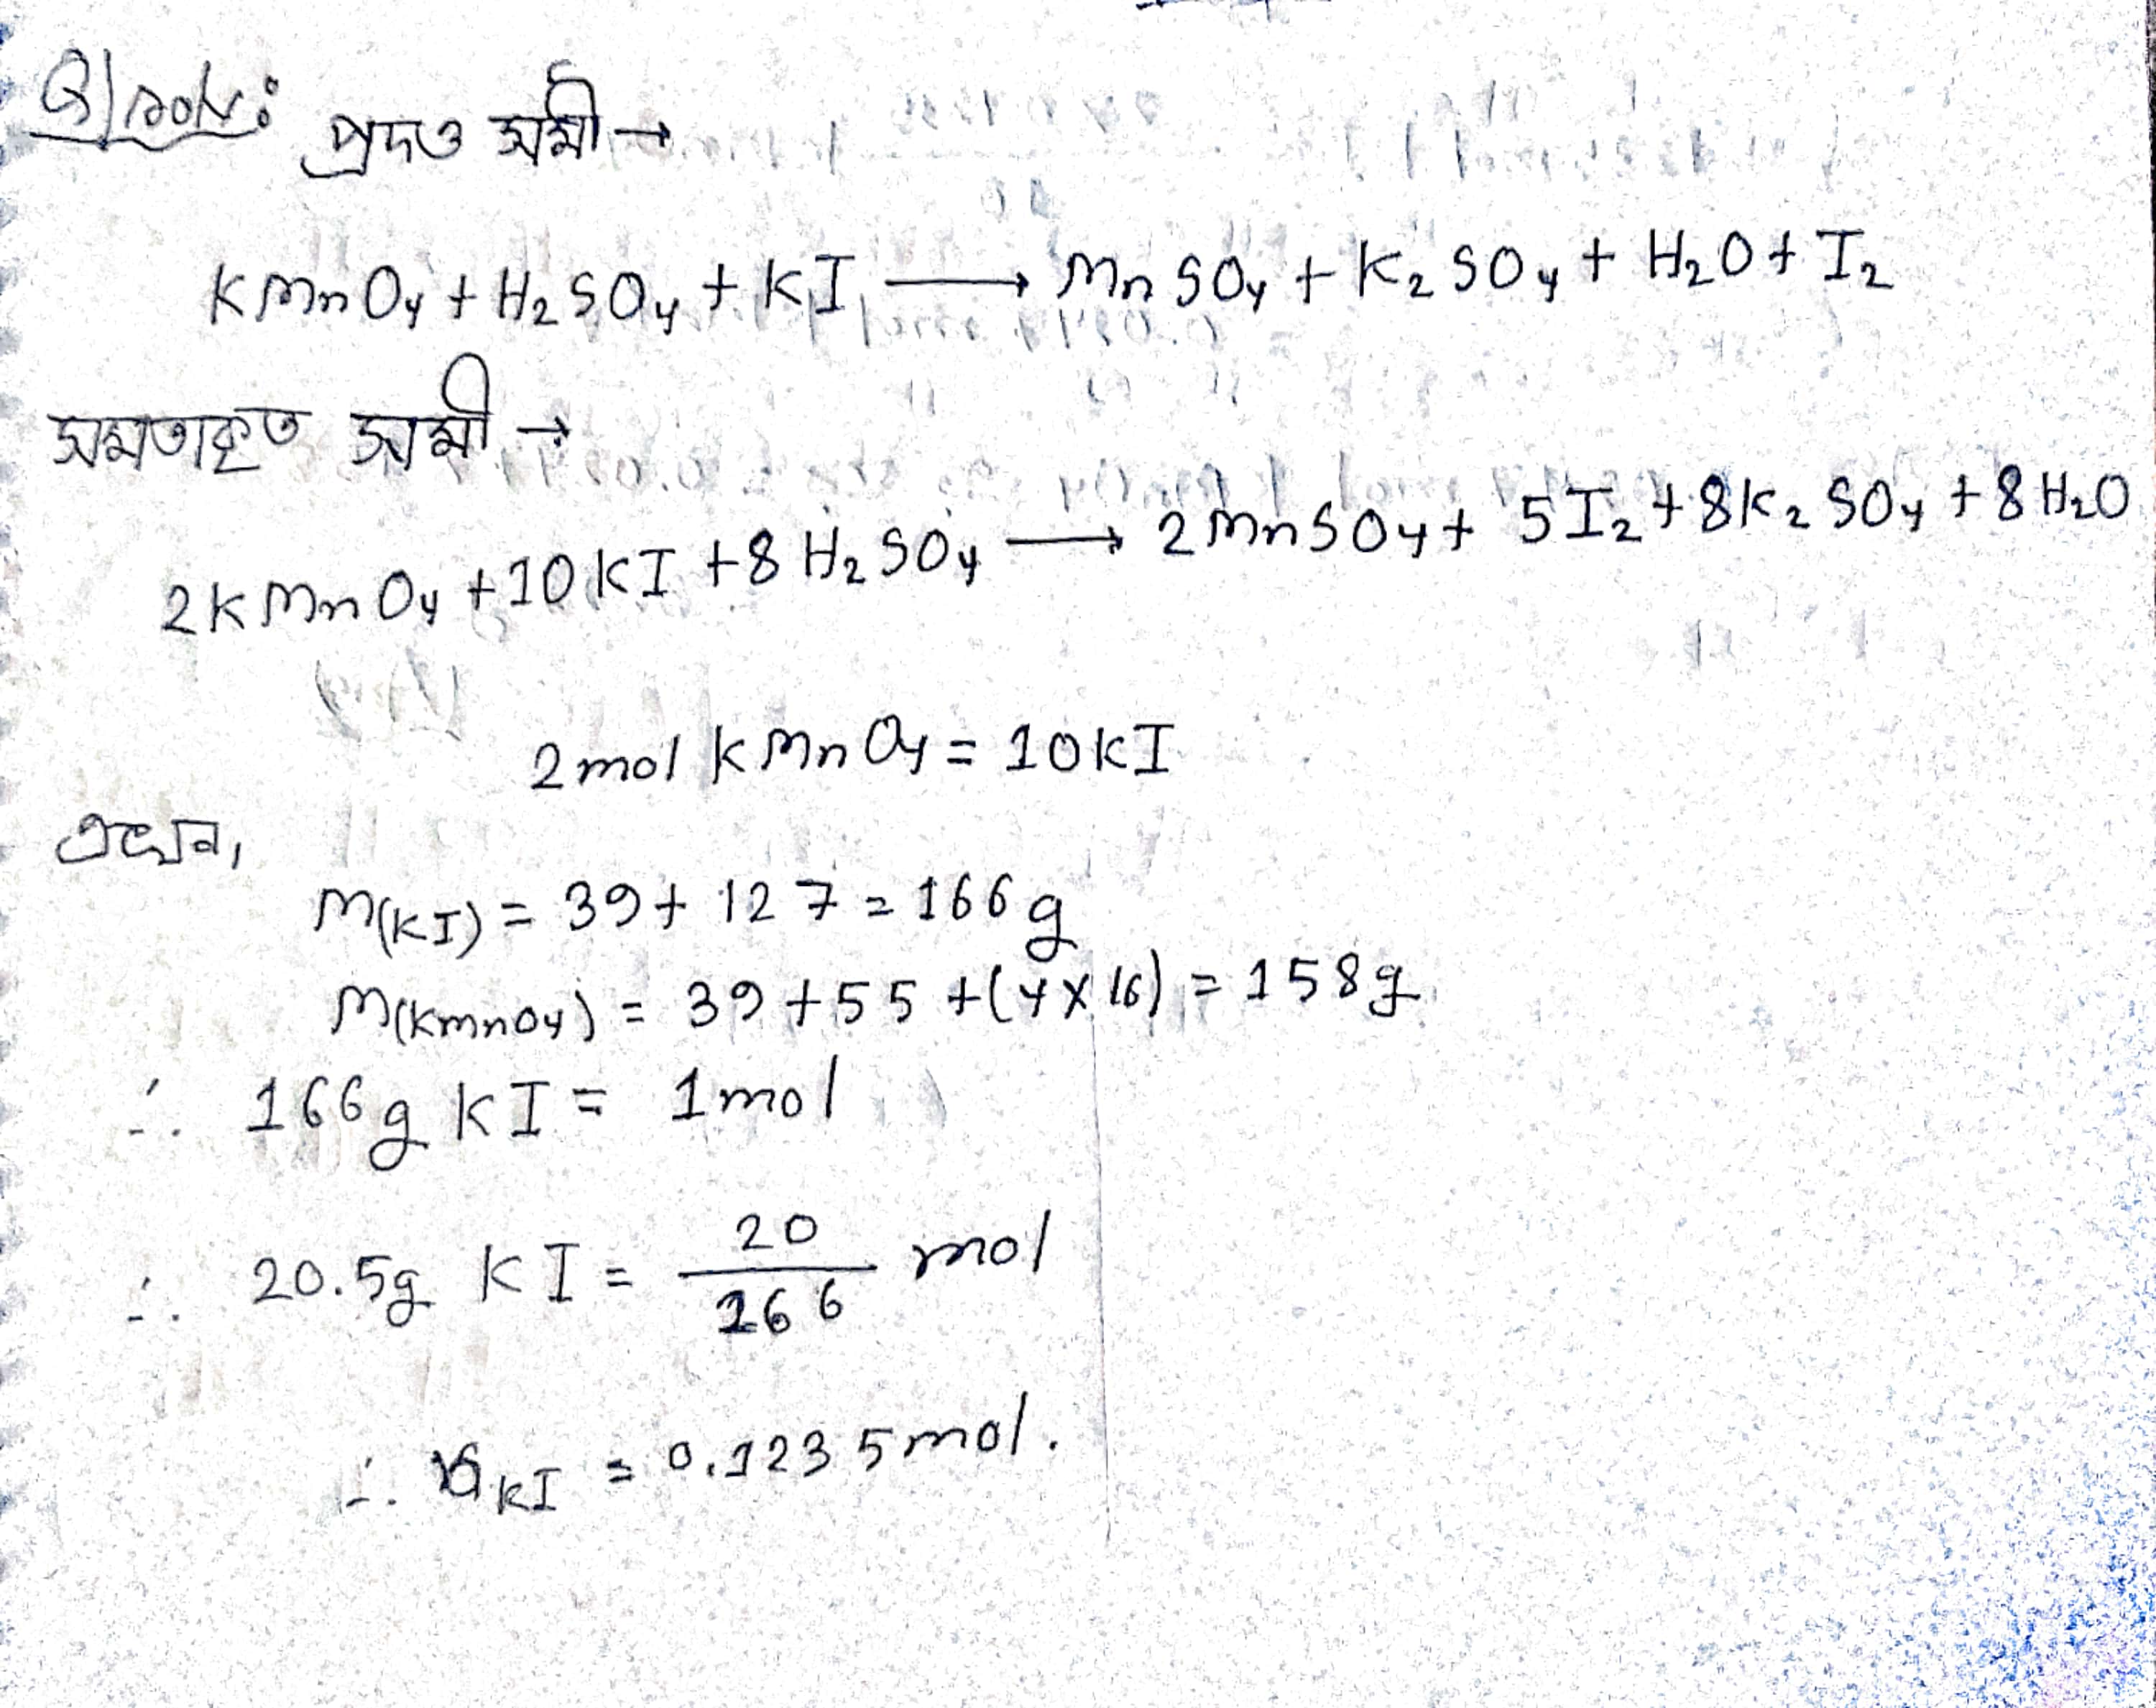 Q| solv: প্রদত্ত সমী →
KMnO₄ + H₂SO₄ + KI ⟶ MnSO₄ + K₂SO₄ + H₂O + I₂
সমতাকৃত সমী →
2KMnO₄ + 10KI + 8H₂SO₄ ⟶ 2MnSO₄ + 5I₂ + 8K₂SO₄ + 8H₂O
2mol KMnO₄ = 10KI
এখন,
M(KI) = 39 + 127 = 166g
M(KMnO₄) = 39 + 55 + (4×16) = 158g
∴ 166g KI = 1mol
∴ 20.5g KI = 20/166 mol
∴ KI = 0.1235mol.